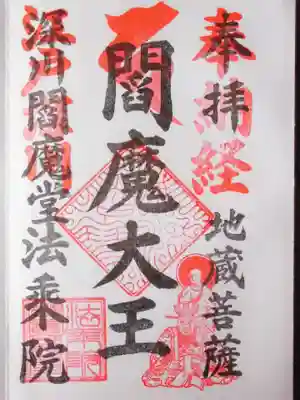 奉拝
納経
地蔵菩薩
閻魔大王
深川閻魔堂法乗院